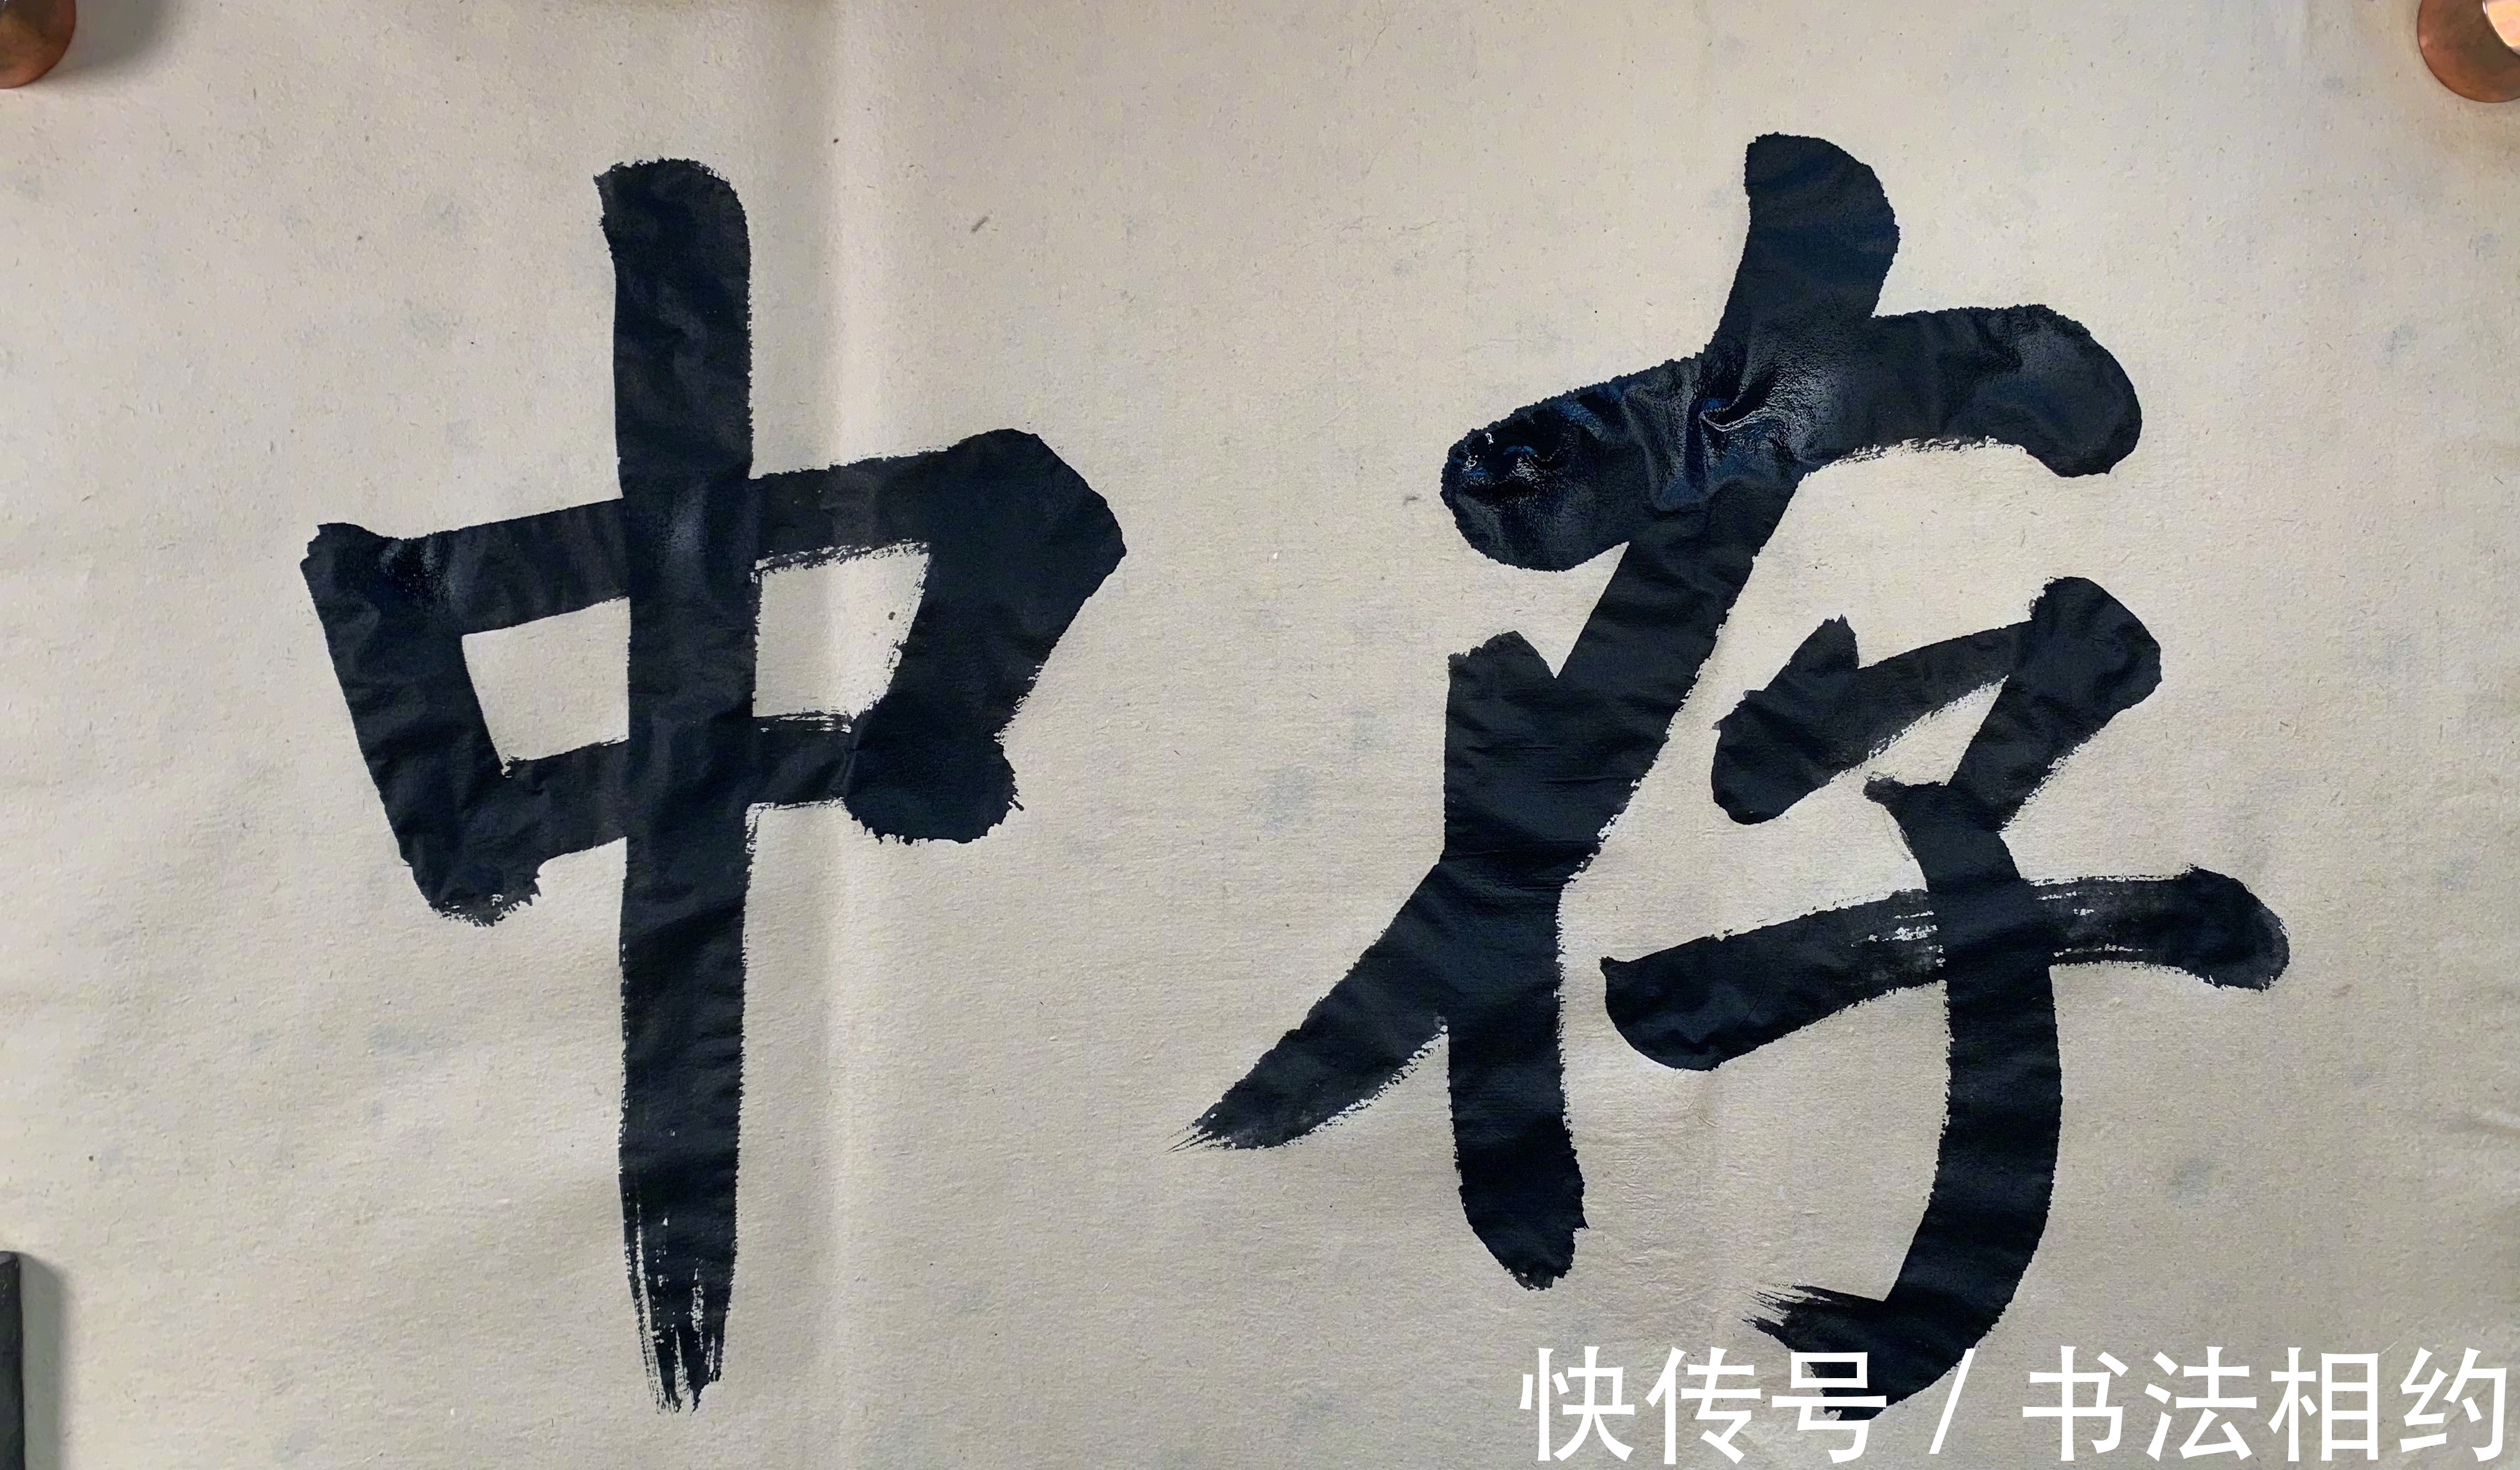 存中
快传号/书法相约